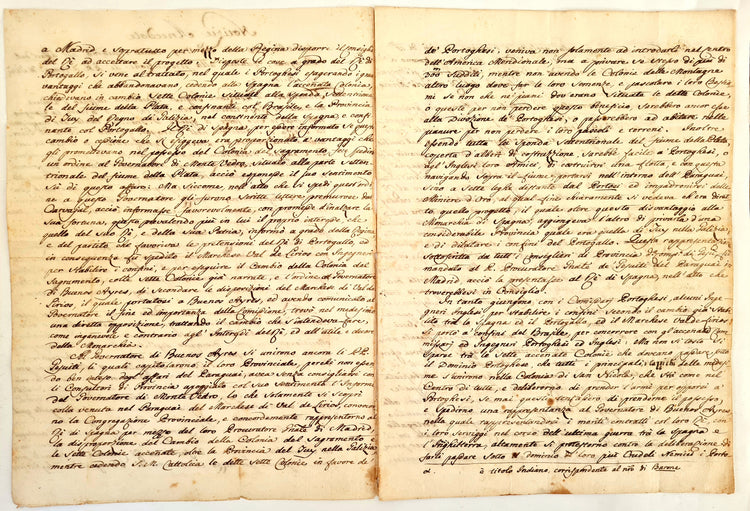 a Madrid, e sopratutto per mezzo della Regina disporre il consiglio
del Rè ad accettare il progetto. Riuscite le cose a grado del Rè di
Portogallo, si vene al trattato, nel quale i Portoghesi esagerando i gran
vantaggi che abbandonavano, cedendo alla Spagna l'accenata Colonia,
chiedevano in cambio sette Colonie situate alla sponda settentriona-
le del fiume della Plata, confinanti col Brasile, e la Provincia
di Tuy del Regno di Galizia, nel continente della Spagna e confi-
nante col Portogallo. Il Rè di Spagna, per essere informato se questo
cambio e cessione che si esiggeva, era proporzionato a' vantaggi che
gli provenivano nel possesso del Colonia del Sacramento, fece spedire
un ordine al Governatore di Monte Vedro, situato alla parte setten-
trionale del fiume della Plata, acciò esponesse il suo sentimento
su di questo affare: Ma siccome nell'atto che si spedì quest'ordi-
ne a questo Governatore gli furono scritte lettere premurose da
Carvajal, acciò informasse favorevolmente, con promesse d'inalzare la
sua fortuna, questo prevalendo più in lui il proprio interesse che
quello del suo Rè, e della sua Patria, informò a grado della Regina
e del partito che favoriva le pretensioni del Rè di Portogallo, ed
in conseguenza fu spedito il Marchese Val de Lirios con Ingegneri
per stabilire i confini, e per eseguire il cambio della Colonia del
Sagramento, colle sette Colonie già narrate, e l'ordine al Governatore
di Buenos Ayres, di secondare le disposizioni del Marchese de Val de
Lirios, il quale portatosi a Buenos Ayres, ed avendo comunicato al
Governatore il fine ed importanza della Comissione, trovò nel medesimo
una diretta opposizione, trattando il cambio che s'intendeva fare,
come ingiurioso e contrario agl'Interessi del Rè, ed all'utile e decoro
della Monarchia.
Al Governatore di Buenos Ayres si unirono ancora li R.R. P.P.
Gesuiti, li quali capitanando il loro Provinciale, perchè non essen-
do ben intesi degl'affari del Paraguai, avea usanza consigliarsi con
li Consultori di Provincia appoggiò col suo sentimento l'Informe
del Governatore di Monte Vedro, lo che solamente si scoprì
colla venuta nel Paraguai del Marchese de Val de Lirios convocaro-
no la Congregazione Provinciale, e concordemente rappresentorno al
Rè di Spagna per mezzo del loro Procuratore Inate di Madrid,
la disproporzione del cambio della Colonia del Sagramento colle
le sette Colonie accenate, oltre la Provincia di Tuy nella Galizia
mentre cedendo S.M. Cattolica le dette sette Colonie in favore de
de' Portoghesi, veniva non solamente ad introdurli nel centro
dell'America Meridionale, ma a privare se stesso di più di
200 sudditi, mentre non avendo le Colonie della Montagna
altro luogo dove far le loro semenze, e pascolare i loro bestia-
mi se non che ne' piani dov'erano situate le dette Colonie,
o queste per non perdere questo beneficio, sarebbero ancor esse
alla divozione de' Portoghesi, o passarebbero ad abitare nelle
pianure per non perdere i loro pascoli e terreni. Inoltre
essendo tutta la sponda settentrionale del fiume della Plata,
coperta d'alberi di costruzione, sarebbe facile a' Portoghesi, ed
agl'Inglesi loro Amici, di costruirvi una flotta, e con questa
navigando sopra il fiume, portarsi nell'interno del Paraguai,
sino a sette leghe distante dal Potosi ed impadronirsi delle
Miniere d'Oro, al qual fine chiaramente si vedeva ch'era diret-
to questo progetto, il quale oltre questo disvantaggio alla
Monarchia di Spagna, aggiongeva l'altro di privarla d'una
considerabile Provincia, quale era quella di Tuy nella Galizia,
e di dilatare i confini del Portogallo. Questa rappresentanza
sottoscritta da tutti i Consiglieri di Provincia fù rimes-
sa mandata al R. Procuratore Inate de Gesuiti del Paraguai in
Madrid, acciò la presentasse al Rè di Spagna, nell'atto che
trovavasi in Consiglio.
In tanto giungono con i Comissari Portoghesi, alcuni Inge-
gneri Inglesi per stabilire i confini secondo il cambio già stabi-
lito trà la Spagna ed il Portogallo, ed il Marchese Val de Lirios
si portò a' confini del Brasile, per concorrere con gl'accenati Com-
missari ed Ingegneri Portoghesi ed Inglesi; Ma non sì tosto si
sparse trà le sette accenate Colonie che dovevano passare sotto
il Dominio Portoghese, che tutti i principali Cassichi delle medesi-
me si unirono nella Colonia di San Nicola, che stà situata nel
Centro di tutte, a deliberare di prendere l'armi per opporsi a'
Portoghesi, se mai questi tentassero di prenderne il possesso,
e spedirno una rappresentanza al Governatore di Buenos Ayres
nella quale rappresentandoli i meriti contratti col loro Rè, con
i loro servigi nel corso dell'ultima guerra trà la Spagna e
l'Inghilterra, altamente si protestorno contro la deliberazione di
farli passare sotto il dominio de' loro più crudeli Nemici i Porto-
a è titolo Indiano, corrispondente al nro di Barone